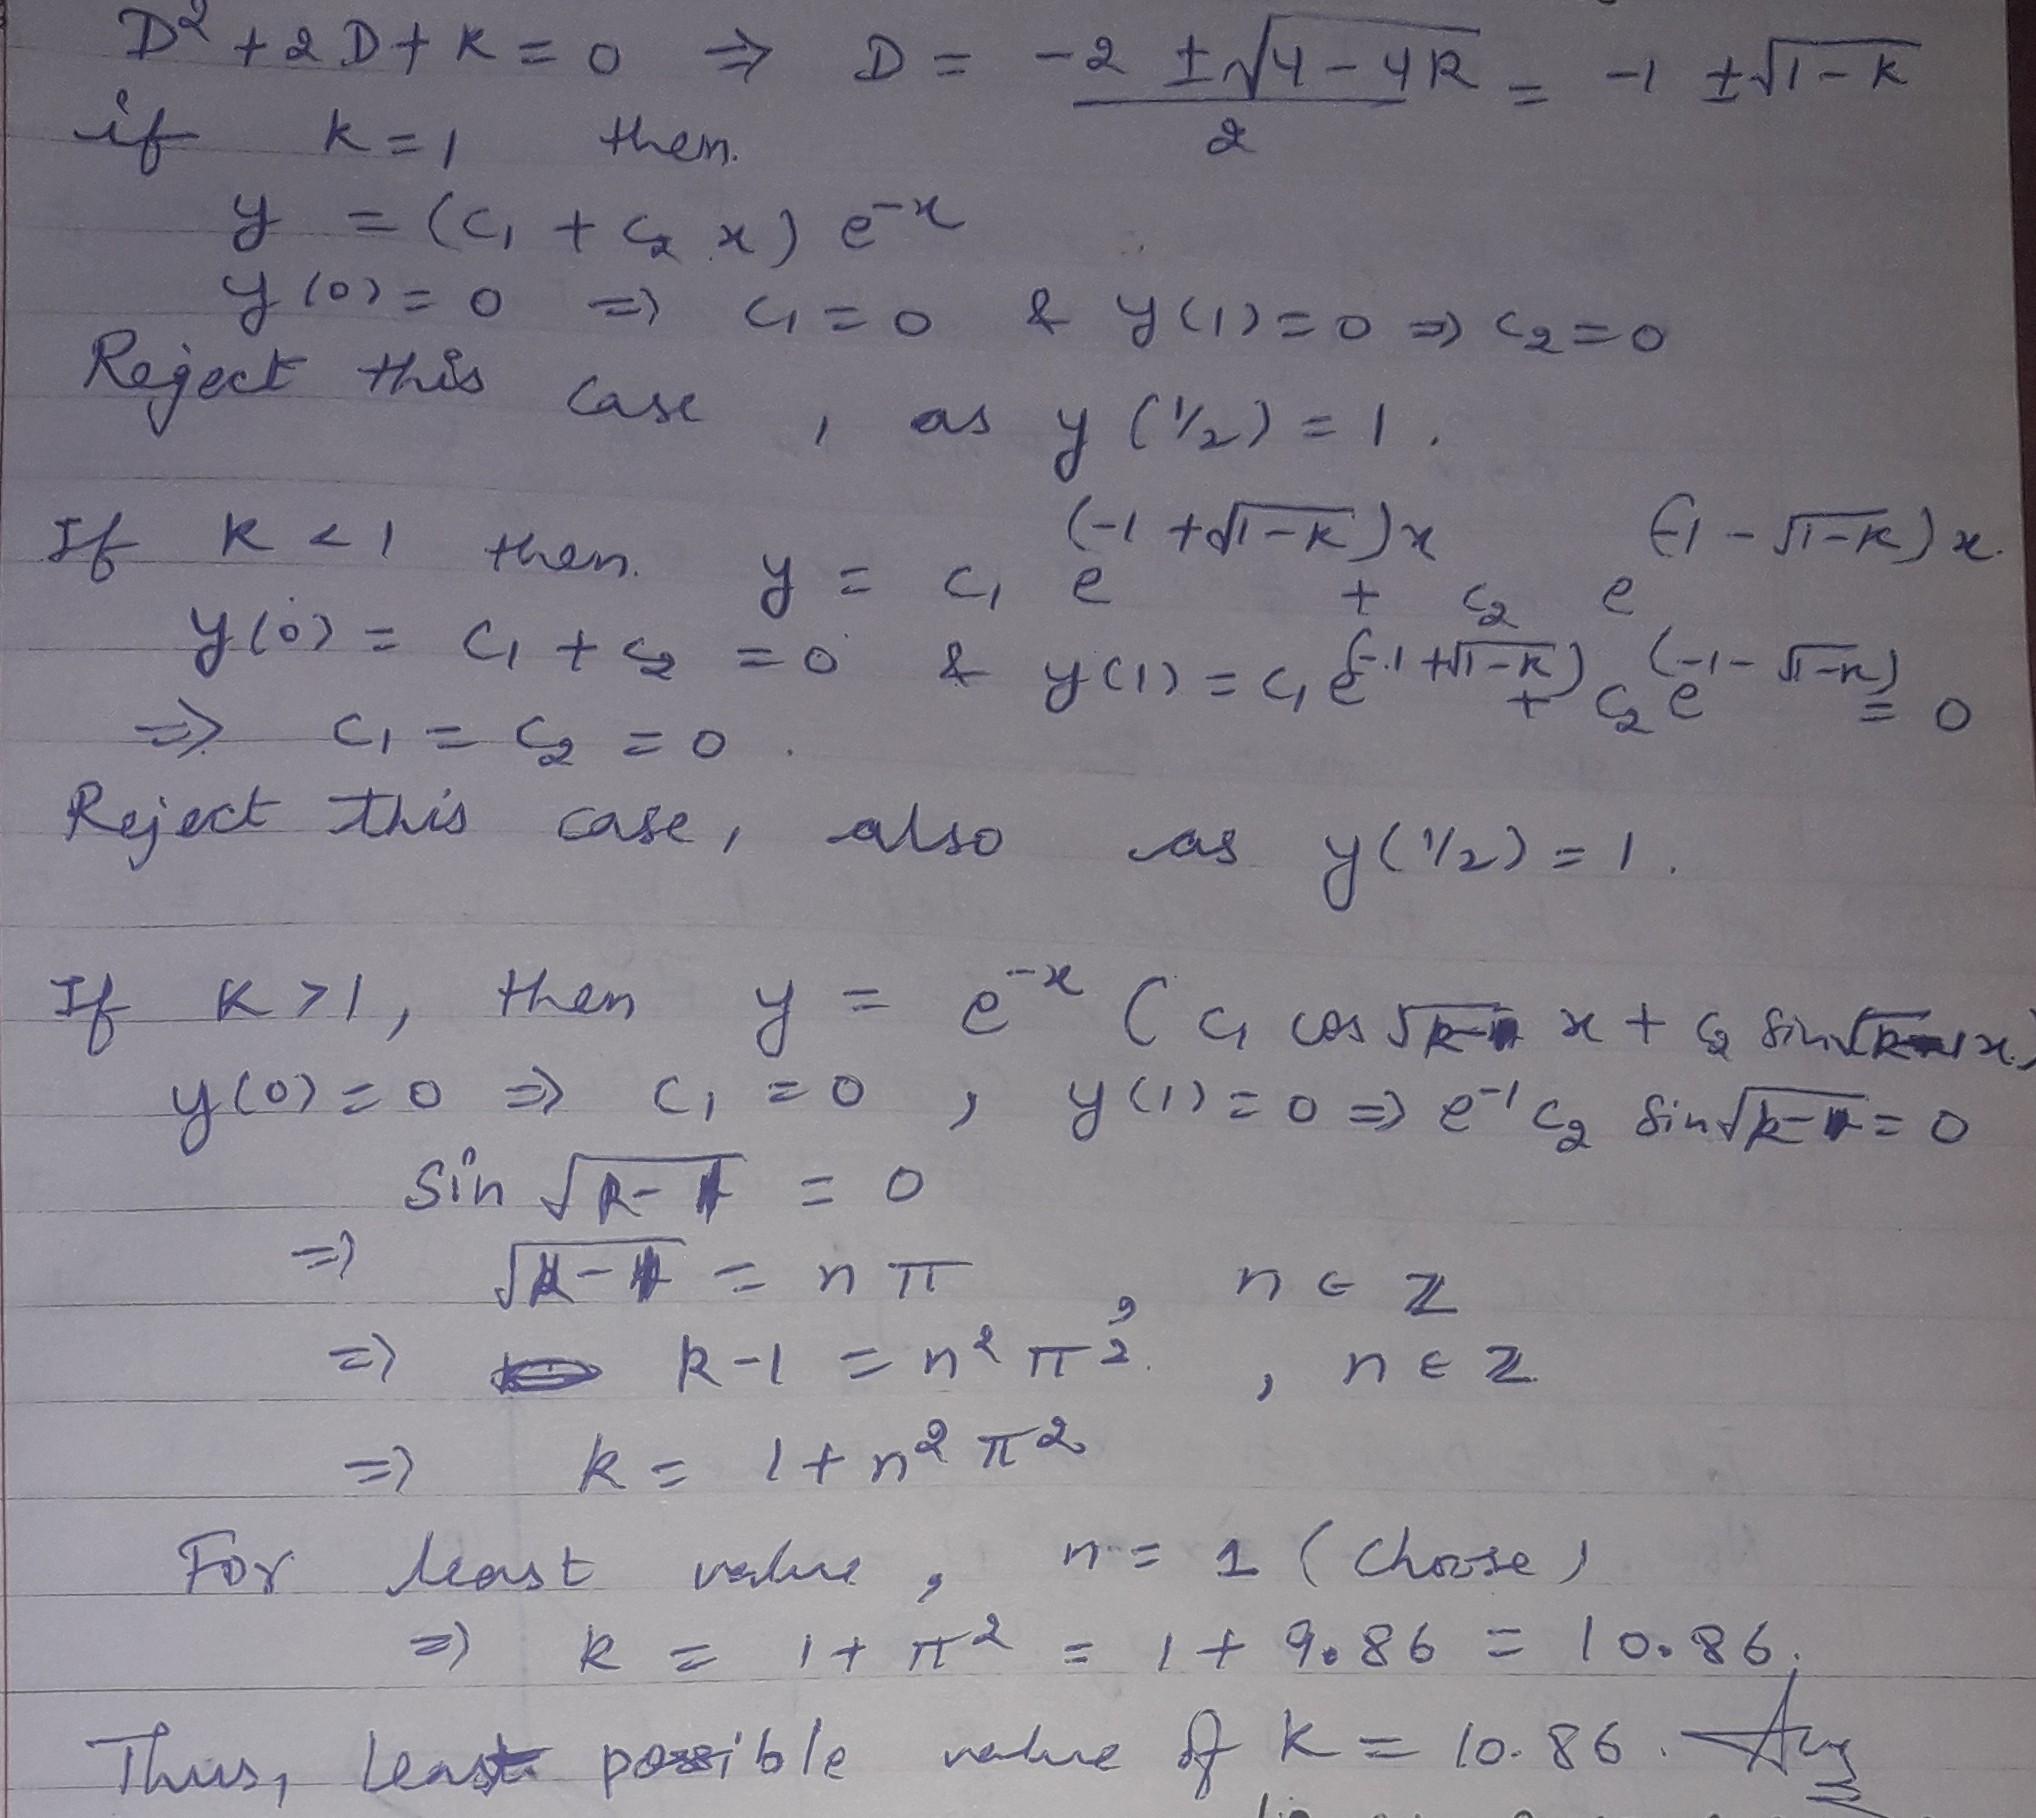 D² + 2D + K = 0 ⇒ D = (-2 ± √(4 - 4k))/2 = -1 ± √(1-k)
if k = 1 then.
y = (c₁ + c₂ x) e^(-x)
y(0) = 0 ⇒ c₁ = 0 & y(1) = 0 ⇒ c₂ = 0
Reject this case, as y(1/2) = 1.
If k < 1 then. y = c₁ e^((-1 + √(1-k))x) + c₂ e^((-1 - √(1-k))x).
y(0) = c₁ + c₂ = 0 & y(1) = c₁ e^((-1 + √(1-k))) + c₂ e^((-1 - √(1-k))) = 0
⇒ c₁ = c₂ = 0.
Reject this case, also as y(1/2) = 1.
If k > 1, then y = e^(-x) (c₁ cos √(k-1) x + c₂ sin √(k-1) x)
y(0) = 0 ⇒ c₁ = 0, y(1) = 0 ⇒ e⁻¹ c₂ sin √(k-1) = 0
sin √(k-1) = 0
⇒ √(k-1) = nπ, n ∈ Z
⇒ k - 1 = n² π². , n ∈ Z
⇒ k = 1 + n² π²
For least value, n = 1 (choose)
⇒ k = 1 + π² = 1 + 9.86 = 10.86.
Thus, least possible value of k = 10.86. Ans